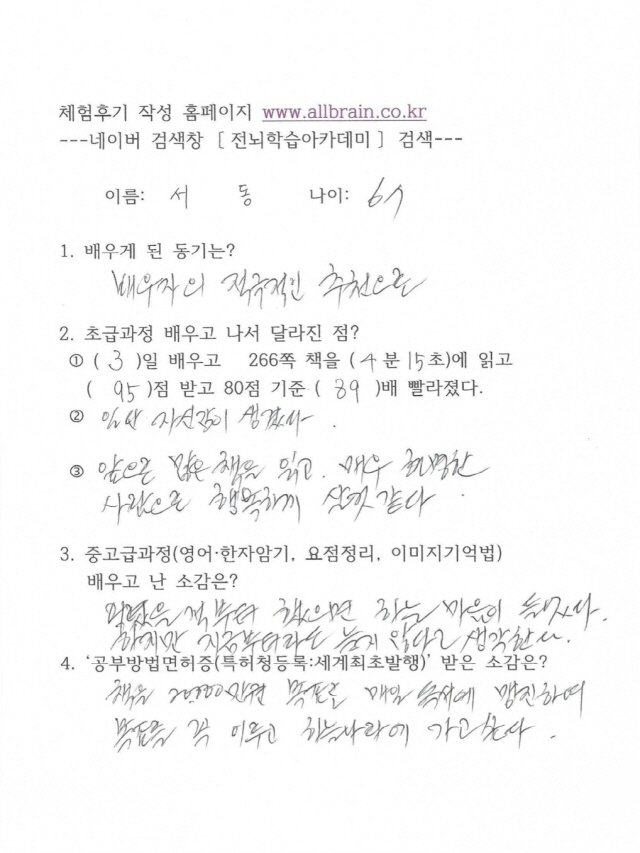 체험후기 작성 홈페이지 www.allbrain.co.kr
---네이버 검색창 [ 전뇌학습아카데미 ] 검색---
이름: 서 동 나이: 6
1. 배우게 된 동기는?
배우자의 적극적인 추천으로
2. 초급과정 배우고 나서 달라진 점?
① ( 3 )일 배우고 266쪽 책을 ( 4 분 15 초)에 읽고
( 95 )점 받고 80점 기준 ( 39 )배 빨라졌다.
② 일단 자신감이 생겼다.
③ 앞으로 많은 책을 읽고. 매우 현명한
사람으로 행복하게 살것 같다.
3. 중고급과정(영어·한자암기, 요점정리, 이미지기억법)
배우고 난 소감은?
어렸을 적부터 했으면 하는 마음이 들었다.
하지만 지금부터라도 늦지 않다고 생각한다.
4. ‘공부방법면허증(특허청등록:세계최초발행)’ 받은 소감은?
책을 목표로 매일 속서에 맹진하여
목표를 꼭 이루고 하늘나라에 가고싶다.